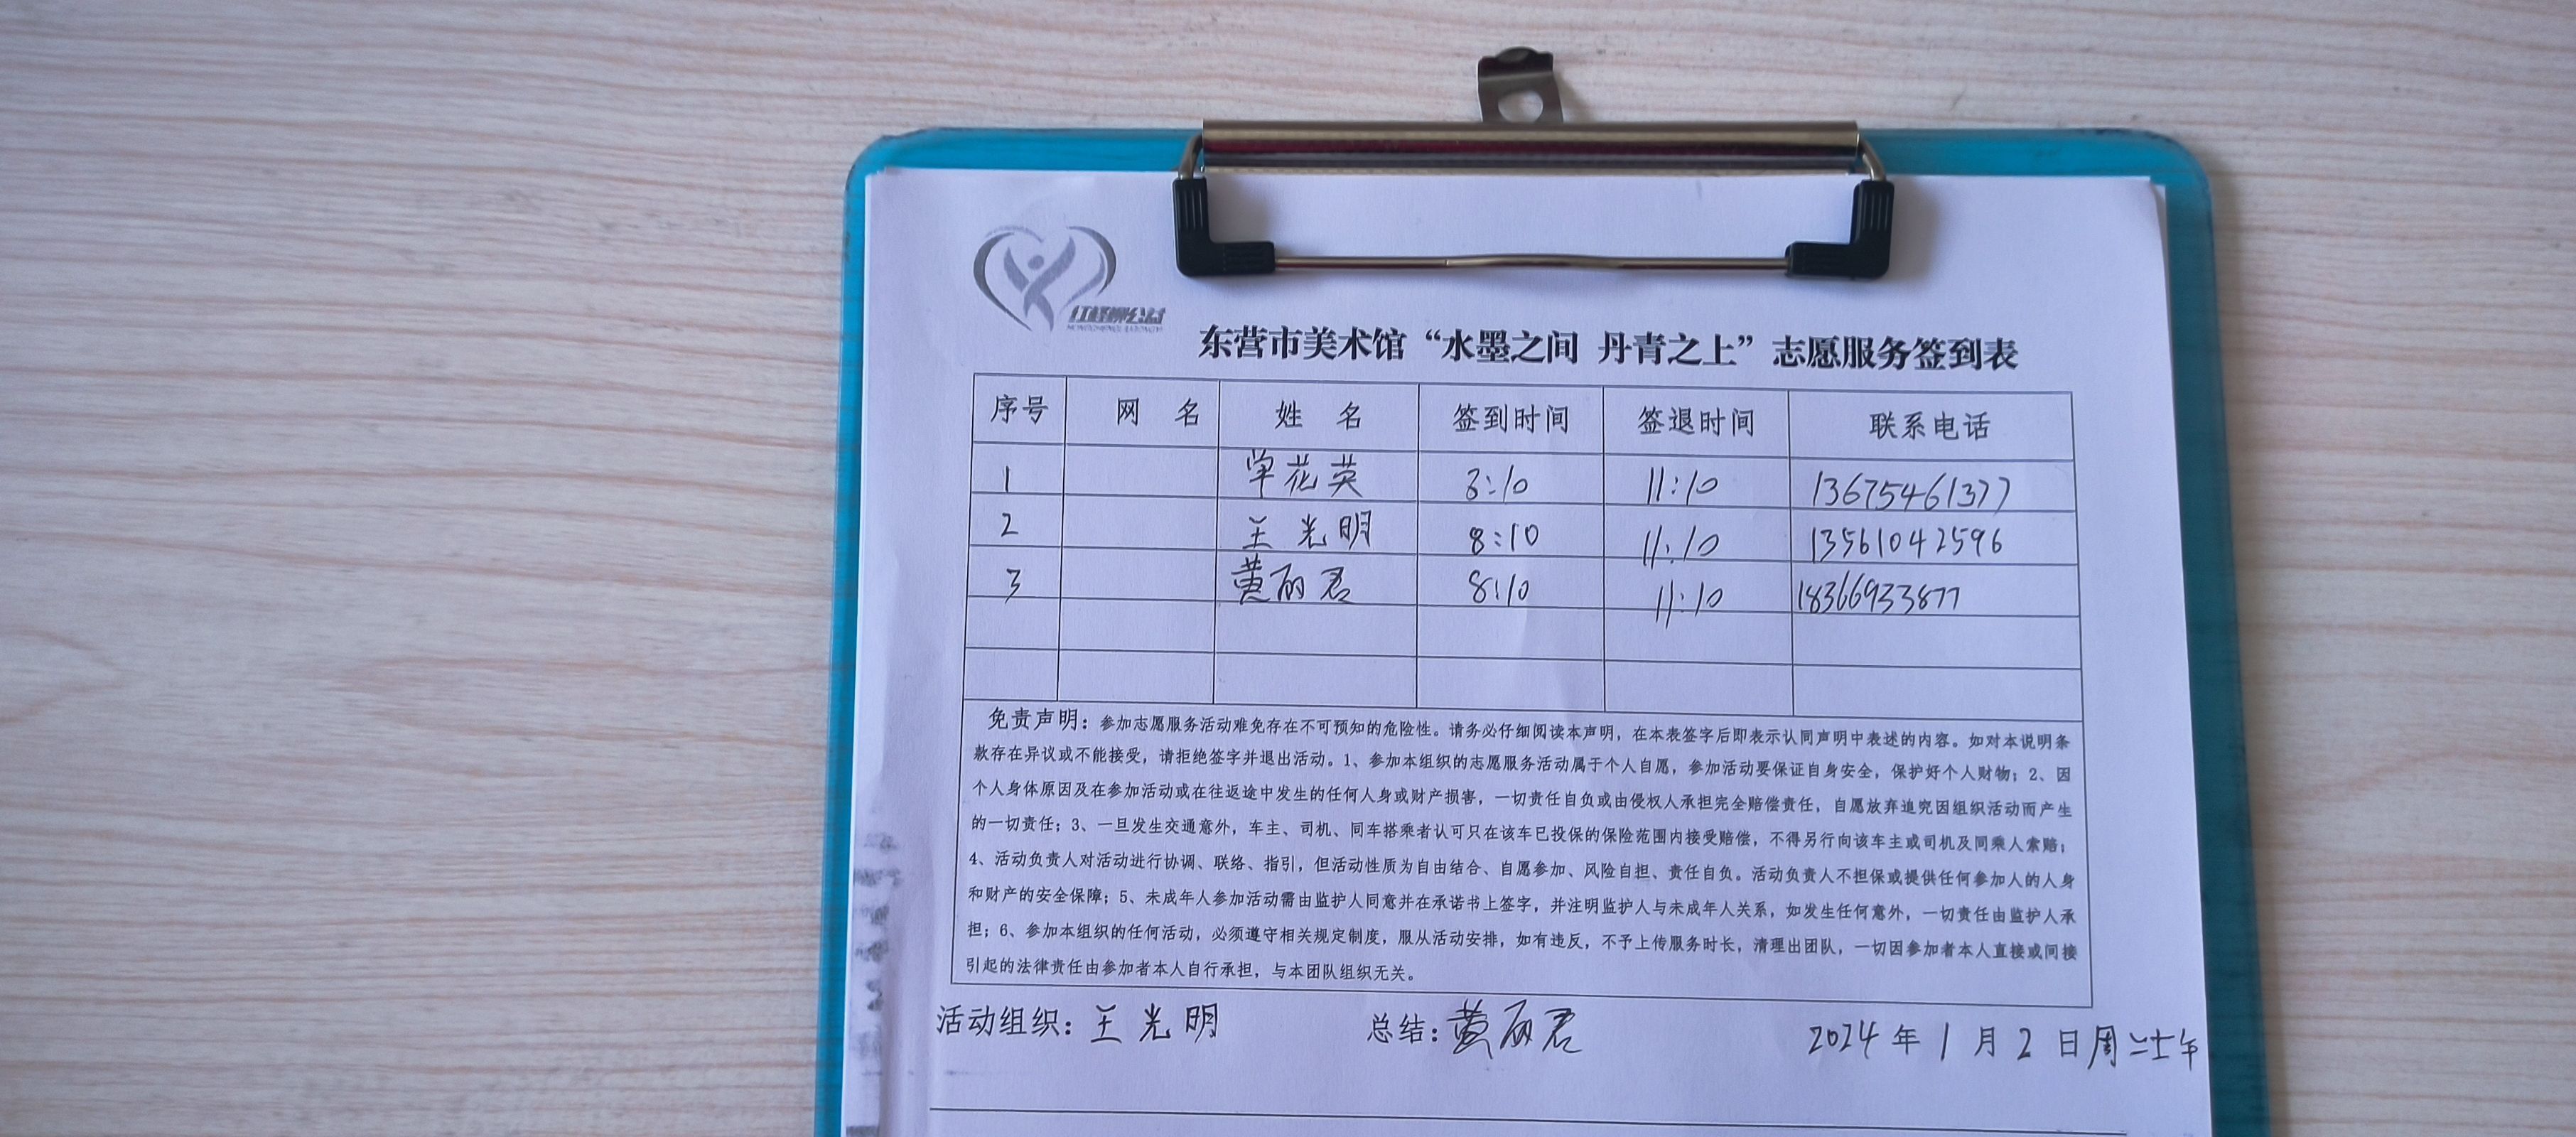 红柽柳公益
东营市美术馆“水墨之间 丹青之上”志愿服务签到表
序号 网 名 姓 名 签到时间 签退时间 联系电话
1 单花英 8:10 11:10 13675461377
2 王光明 8:10 11:10 13561042596
3 黄丽君 8:10 11:10 18366933877
免责声明：参加志愿服务活动难免存在不可预知的危险性。请务必仔细阅读本声明，在本表签字后即表示认同声明中表述的内容。如对本说明条
款存在异议或不能接受，请拒绝签字并退出活动。1、参加本组织的志愿服务活动属于个人自愿，参加活动要保证自身安全，保护好个人财物；2、因
个人身体原因及在参加活动或在往返途中发生的任何人身或财产损害，一切责任自负或由侵权人承担完全赔偿责任，自愿放弃追究因组织活动而产生
的一切责任；3、一旦发生交通意外，车主、司机、同车搭乘者认可只在该车已投保的保险范围内接受赔偿，不得另行向该车主或司机及同乘人索赔；
4、活动负责人对活动进行协调、联络、指引，但活动性质为自由结合、自愿参加、风险自担、责任自负。活动负责人不担保或提供任何参加人的人身
和财产的安全保障；5、未成年人参加活动需由监护人同意并在承诺书上签字，并注明监护人与未成年人关系，如发生任何意外，一切责任由监护人承
担；6、参加本组织的任何活动，必须遵守相关规定制度，服从活动安排，如有违反，不予上传服务时长，清理出团队，一切因参加者本人直接或间接
引起的法律责任由参加者本人自行承担，与本团队组织无关。
活动组织：王光明 总结：黄丽君 2024年1月2日周二上午